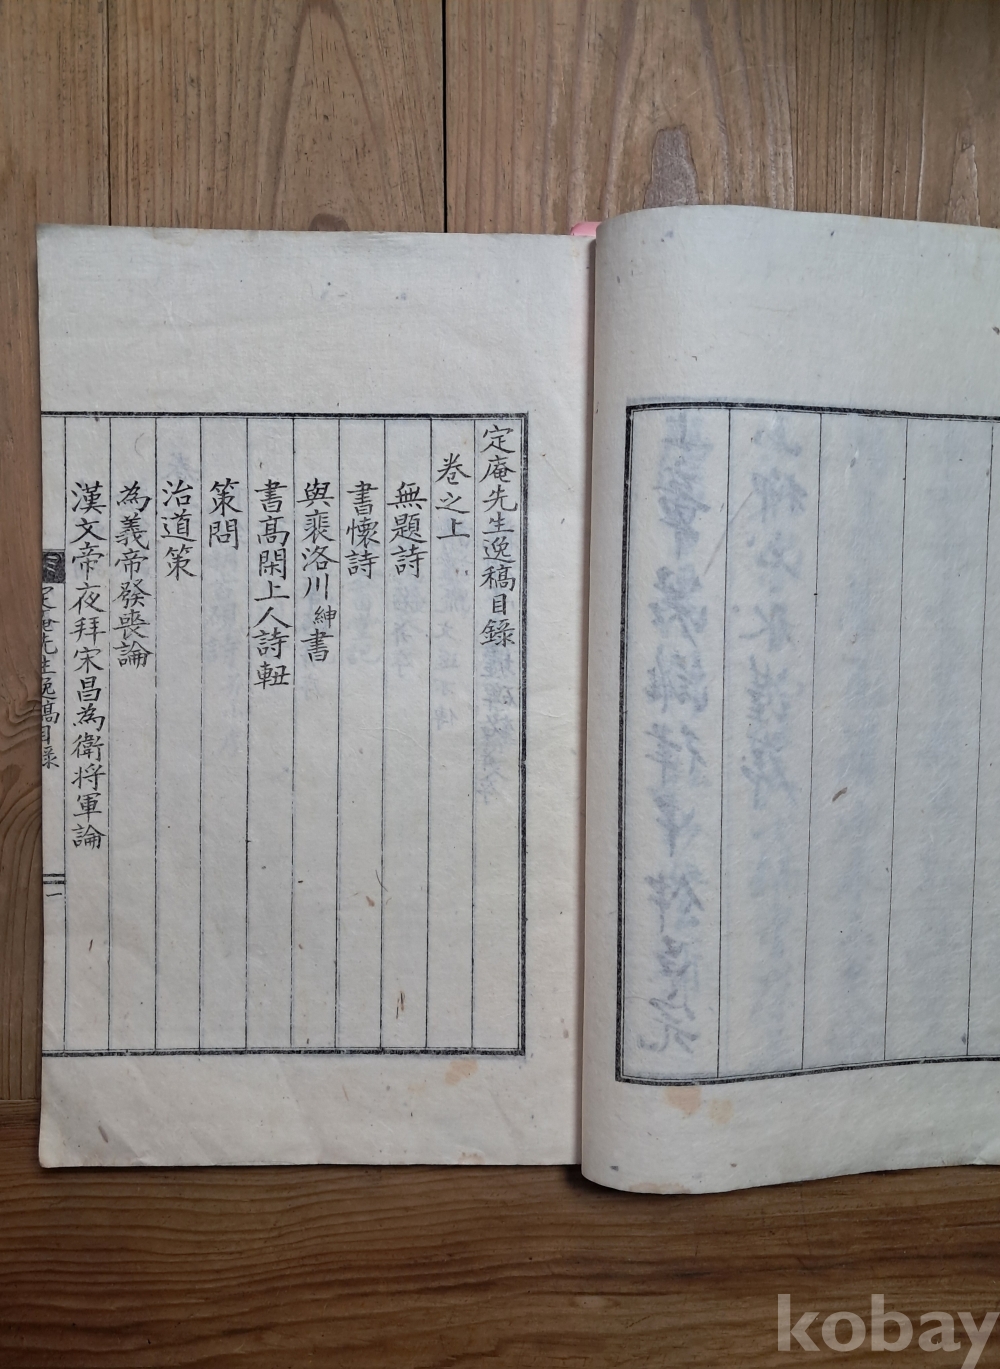 定庵先生逸稿目錄
卷之上
無題詩
書懷詩
與裵洛川紳書
書高閑上人詩軸
策問
治道策
為義帝發喪論
漢文帝夜拜宋昌為衛將軍論
定庵先生逸稿目錄
一
kobay